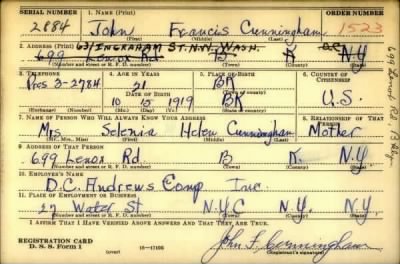 SERIAL NUMBER 1. NAME (Print) ORDER NUMBER
2884 John Francis Cunningham 1523
(First) (Middle) (Last)
2. ADDRESS (Print) 631 INGRAHAM ST. N.W. WASH. D.C.
689 Lenox Rd B K NY
(Number and street or R. F. D. number) (Town) (County) (State)
3. TELEPHONE 4. AGE IN YEARS 5. PLACE OF BIRTH 6. COUNTRY OF CITIZENSHIP
Pres 3-2784 21 BK
DATE OF BIRTH BK U.S.
10 15 1919
(Exchange) (Number) (Mo.) (Day) (Yr.) (State or country)
7. NAME OF PERSON WHO WILL ALWAYS KNOW YOUR ADDRESS 8. RELATIONSHIP OF THAT PERSON
Mrs Selenia Helen Cunningham Mother
(Mr., Mrs., Miss) (First) (Middle) (Last)
9. ADDRESS OF THAT PERSON
689 Lenox Rd. B K. N.Y.
(Number and street or R. F. D. number) (Town) (County) (State)
10. EMPLOYER'S NAME
D.C. Andrews Comp Inc.
11. PLACE OF EMPLOYMENT OR BUSINESS
27 Water St N.Y.C N.Y. N.Y.
(Number and street or R. F. D. number) (Town) (County) (State)
I AFFIRM THAT I HAVE VERIFIED ABOVE ANSWERS AND THAT THEY ARE TRUE.
REGISTRATION CARD
D. S. S. Form 1 (over) 16-17105 John F. Cunningham
(Registrant's signature)